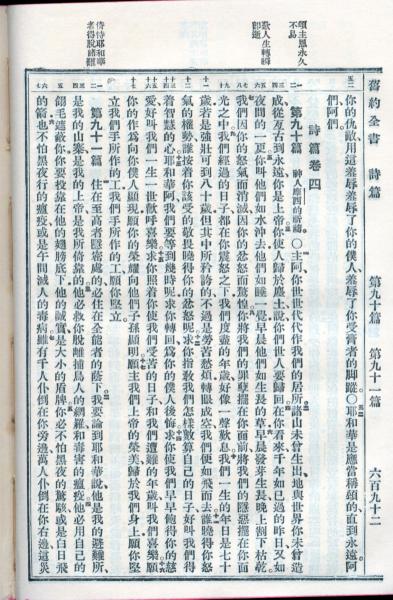 舊約全書 詩篇 第九十篇 第九十一篇 六百九十二
頌主恩永久
不易
歎人生轉瞬
即逝
倚恃耶和華
者得脫諸難
你的仇敵用這羞辱羞辱了你的僕人、羞辱了你受膏者的脚蹤○耶和華是應當稱頌的、直到永遠阿
們阿們。
詩篇卷四
第九十篇 神人摩西的祈禱○主阿你世世代代作我們的居所諸山未曾生出地與世界你未曾造
成從亙古到永遠你是上帝你使人歸於塵土說你們世人要歸回在你看來千年如已過的昨日又如
夜間的一更你叫他們如水冲去他們如睡一覺早晨他們如生長的草早晨發芽生長晚上割下枯乾
我們因你的怒氣而消滅因你的忿怒而驚惶你將我們的罪孽擺在你面前將我們的隱惡擺在你面
光之中我們經過的日子都在你震怒之下我們度盡的年歲好像一聲歎息我們一生的年日是七十
歲若是強壯可到八十歲但其中所矜誇的不過是勞苦愁煩轉眼成空我們便如飛而去誰曉得你怒
氣的權勢誰按着你該受的敬畏曉得你的忿怒呢求你指教我們怎樣數算自己的日子好叫我們得
着智慧的心耶和華阿我們要等到幾時呢求你轉回爲你的僕人後悔求你使我們早早飽得你的慈
愛好叫我們一生一世歡呼喜樂求你照着你使我們受苦的日子和我們遭難的年歲叫我們喜樂願
你的作爲向你僕人顯現願你的榮耀向他們子孫顯明願主我們上帝的榮美歸於我們身上願你堅
立我們手所作的工我們手所作的工願你堅立
第九十一篇 住在至高者隱密處的必住在全能者的蔭下我要論到耶和華說他是我的避難所
是我的山寨是我的上帝是我所倚靠的他必救你脫離捕鳥人的網羅和毒害的瘟疫他必用自己的
翎毛遮蔽你你要投靠在他的翅膀底下他的誠實是大小的盾牌你必不怕黑夜的驚駭或是白日飛
的箭也不怕黑夜行的瘟疫或是午間滅人的毒病雖有千人仆倒在你旁邊萬人仆倒在你右邊這災